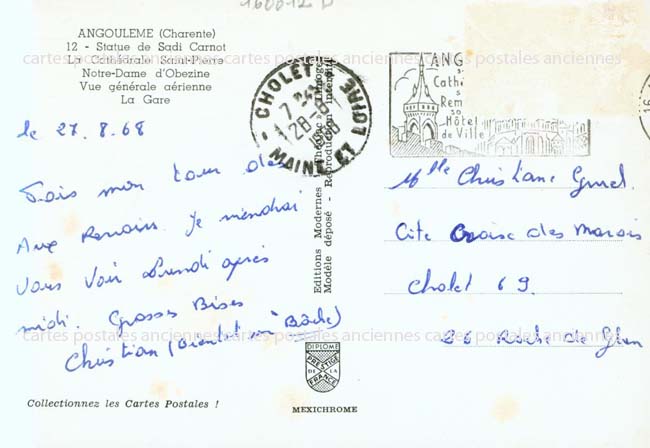 160012 D
ANGOULEME (Charente)
12 - Statue de Sadi Carnot
La Cathédrale Saint-Pierre
Notre-Dame d'Obezine
Vue générale aérienne
La Gare
cartes postales anciennes cartes postales anciennes cartes postales anciennes
le 27.8.68
Fais mon tour des
Aux Revoirs. Je viendrai
Vous Voir Lundi après
midi. Grosses Bises
Christian
CHOLET
28-8
1968
MAINE ET LOIRE
Editions Modernes
Modèle déposé - Reproduction interdite
ANG
Cath
Rem
Hôtel
de Ville
16
Mlle Christiane
Cite Croise des Marais
Cholet 69.
26 Roche de Glun
cartes postales anciennes cartes postales anciennes cartes postales anciennes
DIPLOME
PRESTIGE
DE LA
FRANCE
Collectionnez les Cartes Postales !
MEXICHROME